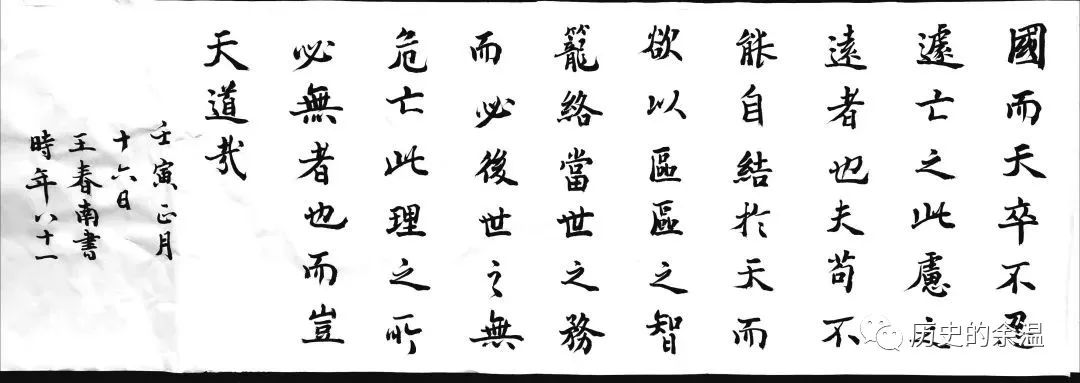 國而天卒不忍
遽亡之此慮之
遠者也夫苟不
能自結於天而
欲以區區之智
籠絡當世之務
而必後世之無
危亡此理之所
必無者也而豈
天道哉
壬寅正月
十六日
王春南書
時年八十一
历史的余温